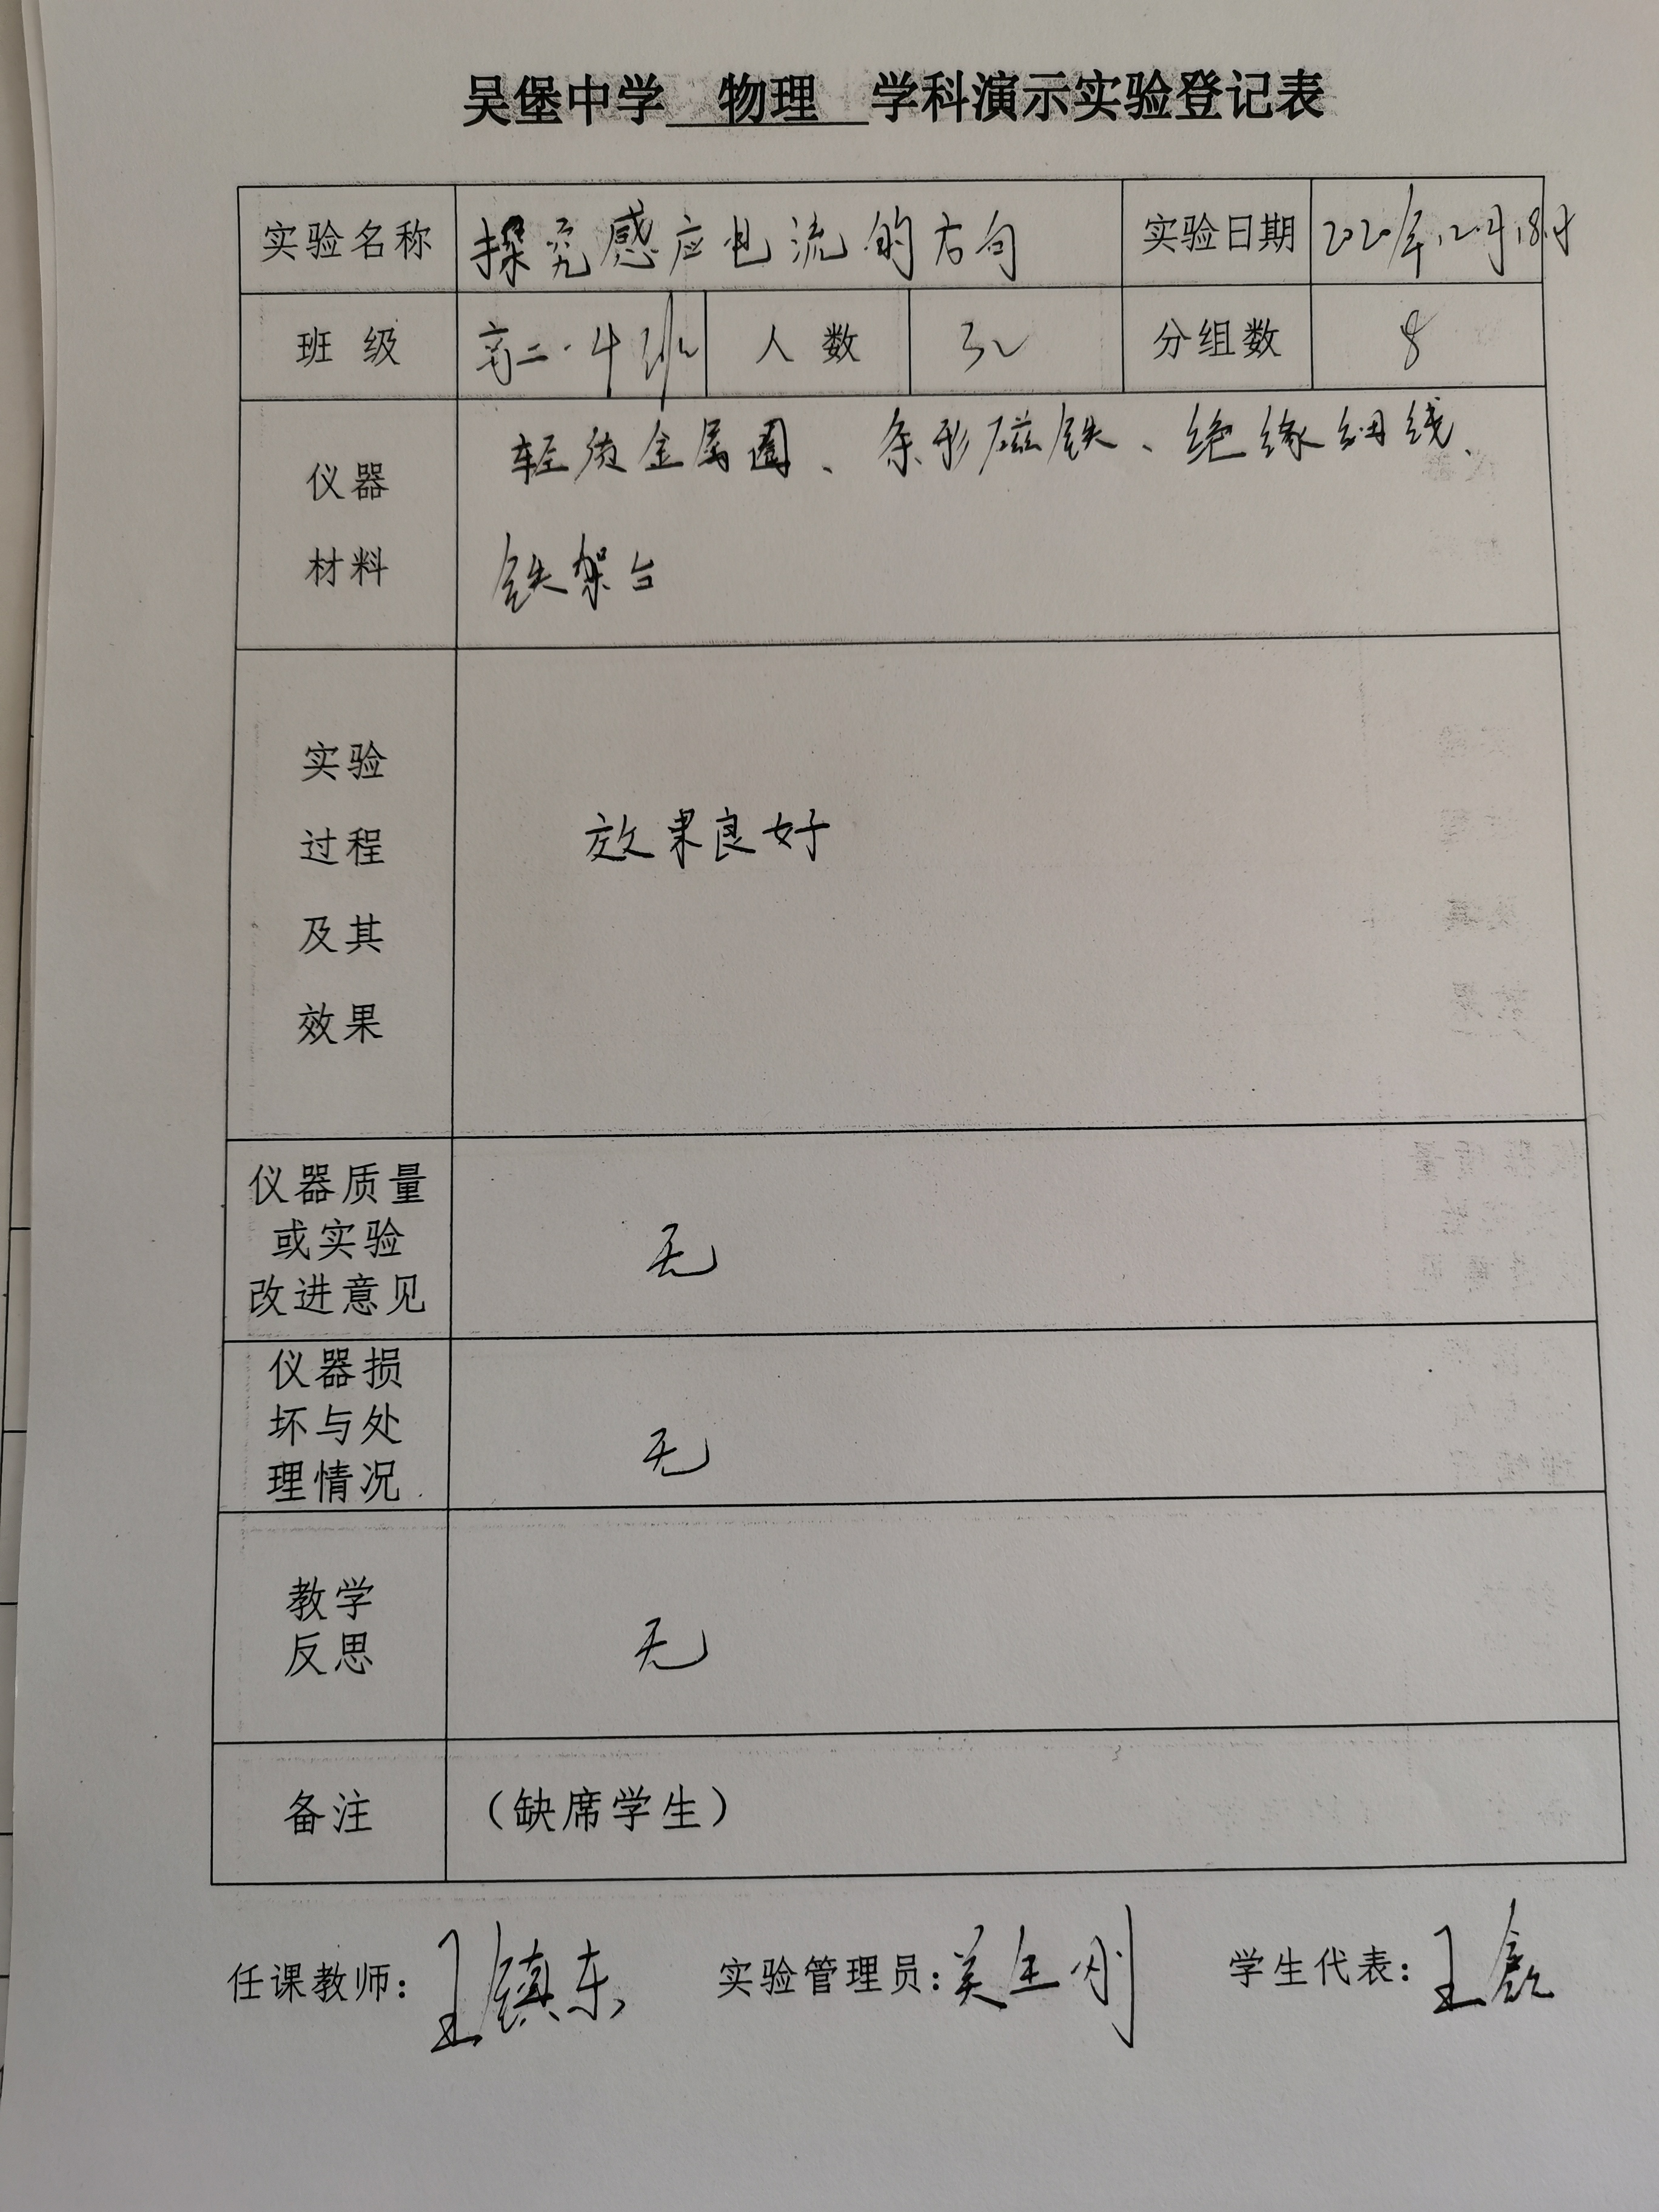 吴堡中学 物理 学科演示实验登记表
实验名称 探究感应电流的方向 实验日期 2020年12月18日
班 级 高二·4班 人 数 32 分组数 8
仪器
材料
轻质金属圈、条形磁铁、绝缘细线、
铁架台
实验
过程
及其
效果
效果良好
仪器质量
或实验
改进意见
无
仪器损
坏与处
理情况
无
教学
反思
无
备注 （缺席学生）
任课教师：王镇东 实验管理员： 学生代表：王磊